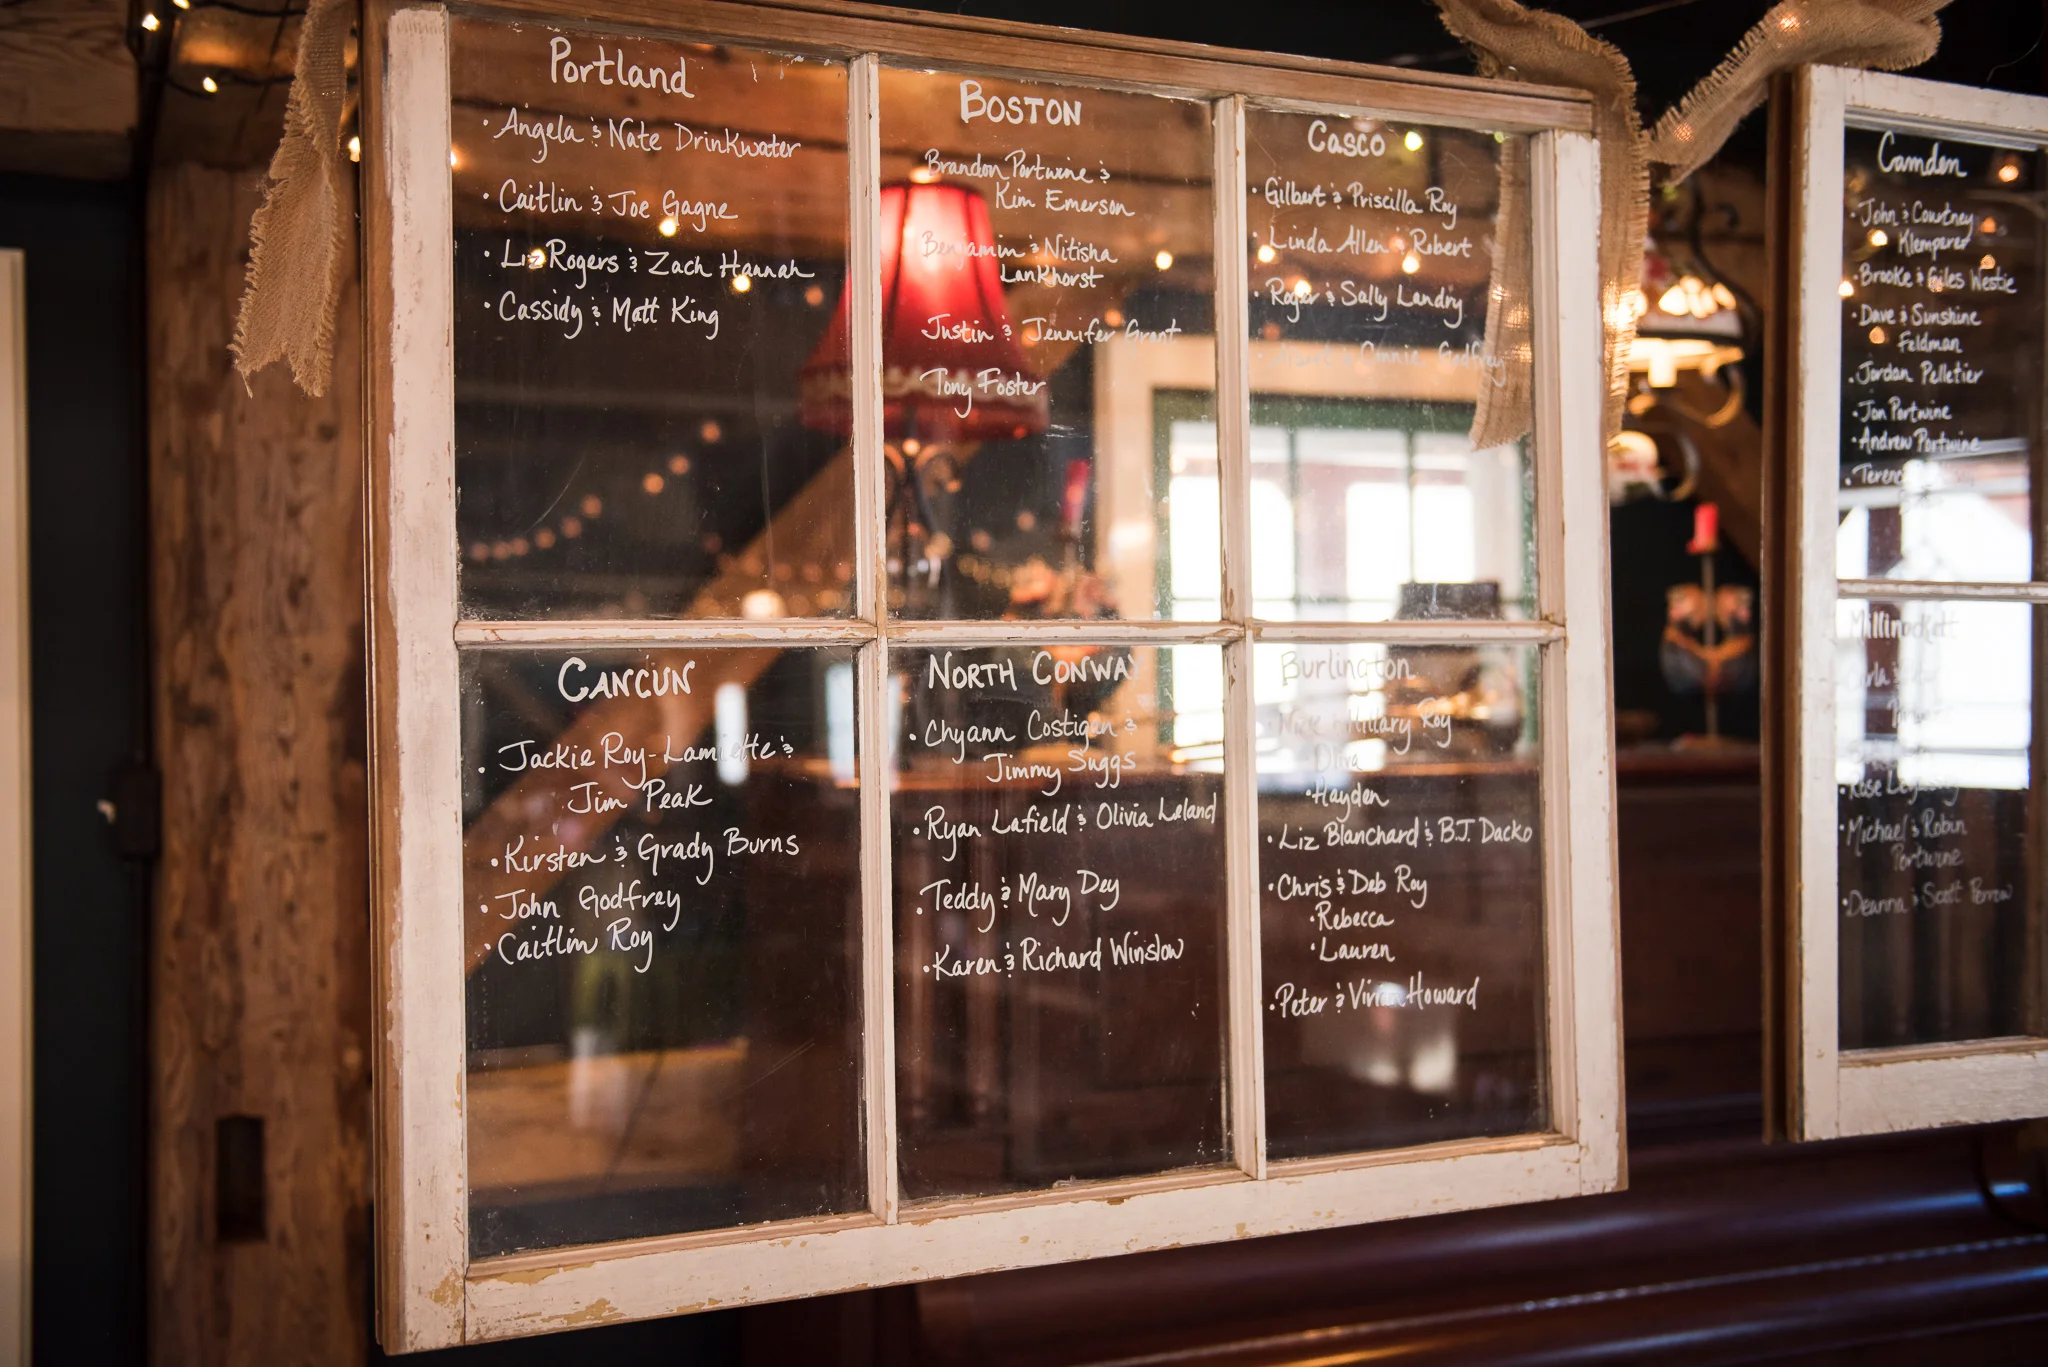 Portland
· Angela & Nate Drinkwater
· Caitlin & Joe Gagne
· Liz Rogers & Zach Hannah
· Cassidy & Matt King
BOSTON
Brandon Portwine &
Kim Emerson
Benjamin & Nitisha
Lankhorst
Justin & Jennifer Grant
Tony Foster
Casco
· Gilbert & Priscilla Roy
· Linda Allen & Robert
· Roger & Sally Landry
& Connie Godfrey
CANCUN
· Jackie Roy-Lamiette &
Jim Peak
· Kirsten & Grady Burns
· John Godfrey
· Caitlin Roy
NORTH CONWAY
· Chyann Costigan &
Jimmy Suggs
· Ryan Lafield & Olivia Leland
· Teddy & Mary Dey
· Karen & Richard Winslow
Burlington
· Nick & Hillary Roy
Olivia
· Hayden
· Liz Blanchard & B.J. Dacko
· Chris & Deb Roy
· Rebecca
· Lauren
· Peter & Vivian Howard
Camden
· John & Courtney
Klemperer
· Brooke & Giles Westie
· Dave & Sunshine
Feldman
· Jordan Pelletier
· Jon Portwine
· Andrew Portwine
Millinockett
· Rose
· Michael & Robin
Portwine
· Deanna & Scott Perrow